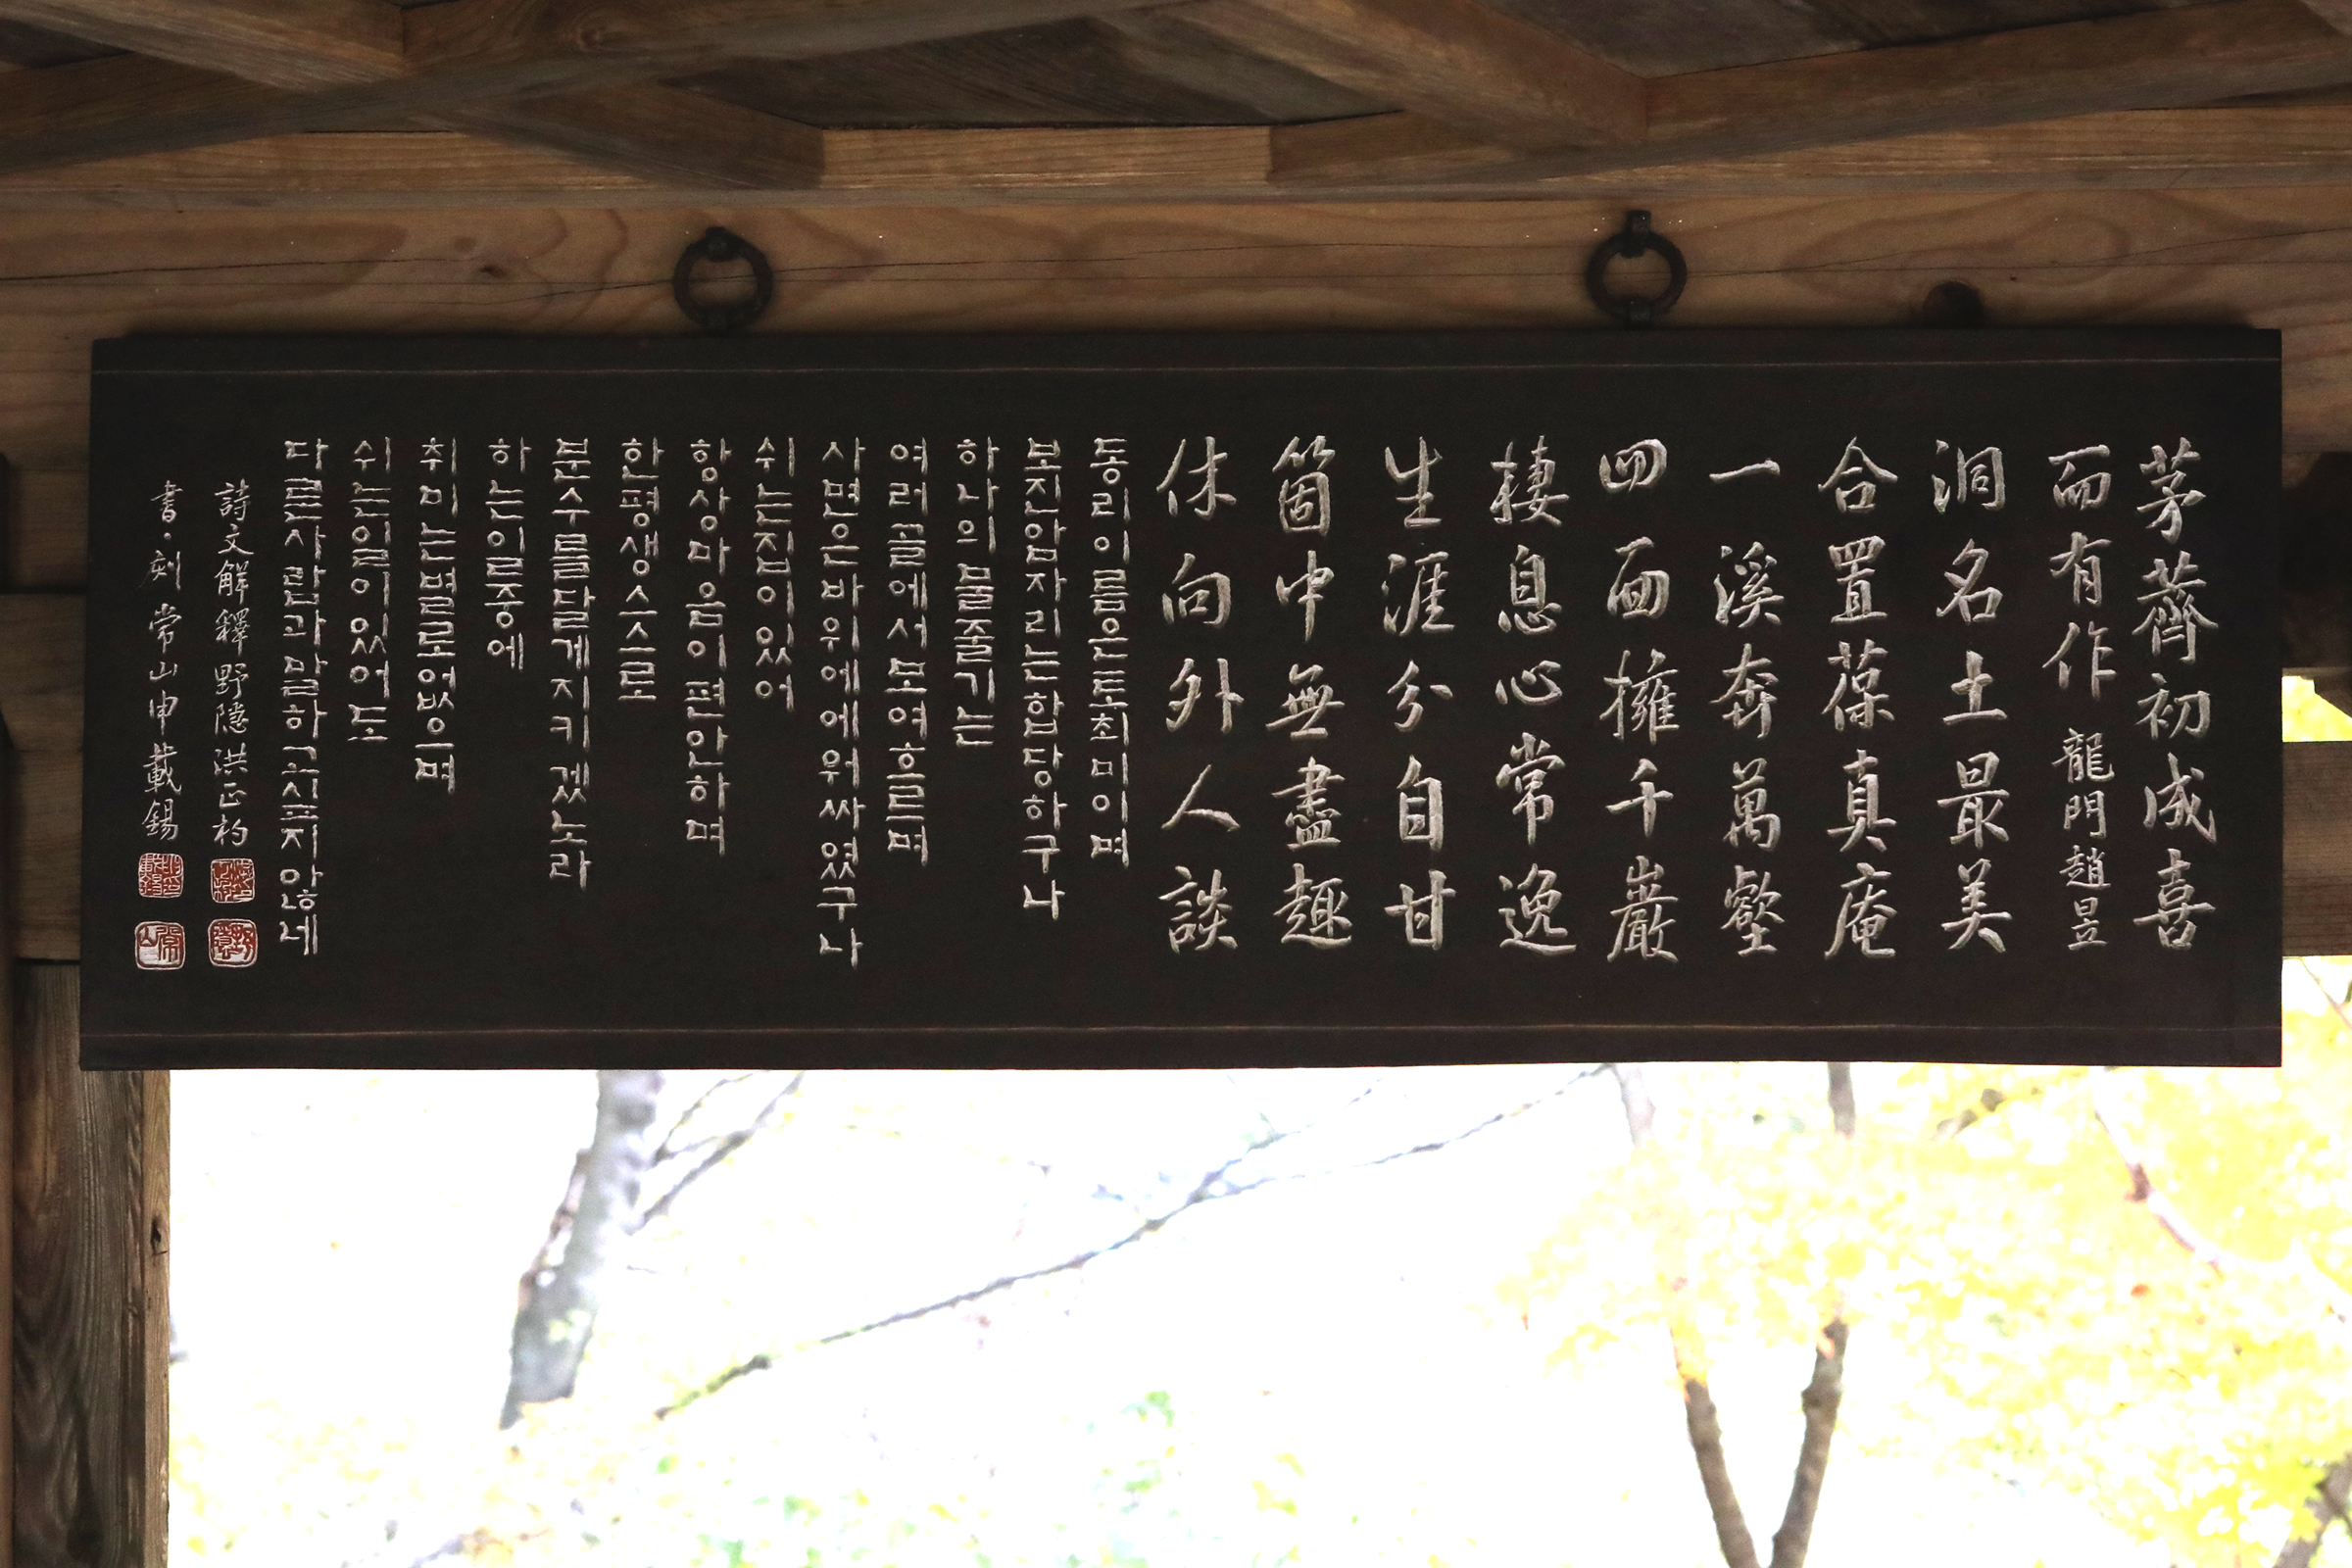 茅薺初成喜
而有作 龍門趙昱
洞名土最美
合置葆真庵
一溪奔萬壑
四面擁千巖
棲息心常逸
生涯分自甘
箇中無盡趣
休向外人談
동리이름은토최미이며
보진암자리는합당하구나
하나의물줄기는
여러골에서모여흐르며
사면은바위에에워싸였구나
쉬는집이있어
항상마음이편안하며
한평생스스로
분수를달게지키겠노라
하는일중에
취미는별로없으며
쉬는일이있어도
다른사람과말하고시프지않네
詩文解釋 野隱洪正杓
書·刻 常山申載錫